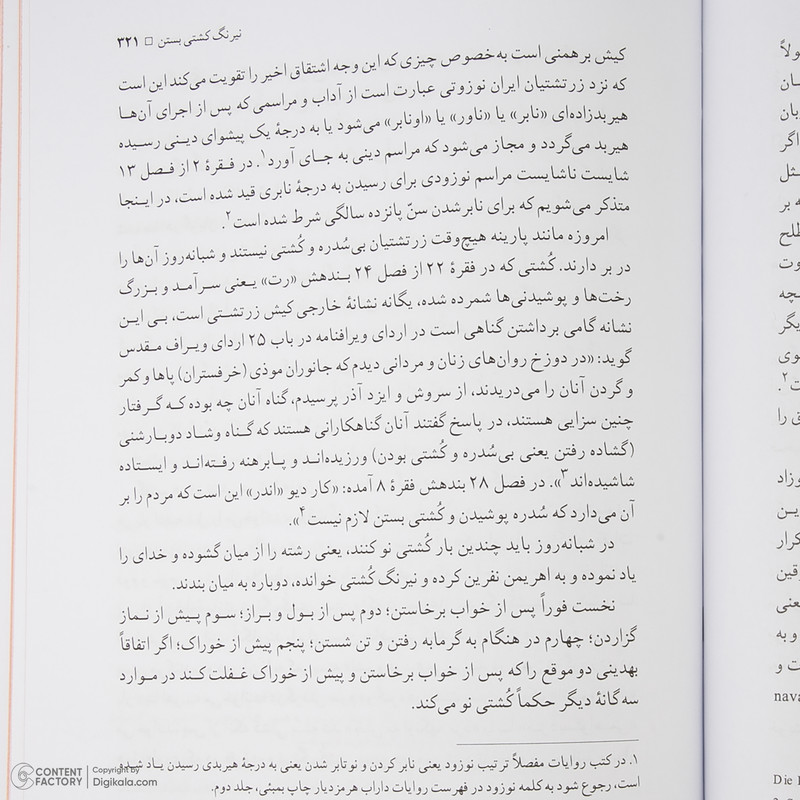 نیرنگ کشتی بستن □ ۳۲۱
کیش برهمنی است به‌خصوص چیزی که این وجه اشتقاق اخیر را تقویت می‌کند این است
که نزد زرتشتیان ایران نوزوتی عبارت است از آداب و مراسمی که پس از اجرای آن‌ها
هیربدزاده‌ای «نابر» یا «ناور» یا «اونابر» می‌شود یا به درجهٔ یک پیشوای دینی رسیده
هیربد می‌گردد و مجاز می‌شود که مراسم دینی به جای آورد۱. در فقرهٔ ۲ از فصل ۱۳
شایست ناشایست مراسم نوزودی برای رسیدن به درجهٔ نابری قید شده است، در اینجا
متذکر می‌شویم که برای نابرشدن سنّ پانزده سالگی شرط شده است۲.
امروزه مانند پارینه هیچ‌وقت زرتشتیان بی‌سُدره و کُشتی نیستند و شبانه‌روز آن‌ها را
در بر دارند. کُشتی که در فقرهٔ ۲۲ از فصل ۲۴ بندهش «رت» یعنی سرآمد و بزرگ
رخت‌ها و پوشیدنی‌ها شمرده شده، یگانه نشانهٔ خارجی کیش زرتشتی است، بی این
نشانه گامی برداشتن گناهی است در اردای ویرافنامه در باب ۲۵ اردای ویراف مقدس
گوید: «در دوزخ روان‌های زنان و مردانی دیدم که جانوران موذی (خرفستران) پاها و کمر
و گردن آنان را می‌دریدند، از سروش و ایزد آذر پرسیدم، گناه آنان چه بوده که گرفتار
چنین سزایی هستند، در پاسخ گفتند آنان گناهکارانی هستند که گناه وشاد دوبارشنی
(گشاده رفتن یعنی بی‌سُدره و کُشتی بودن) ورزیده‌اند و پابرهنه رفته‌اند و ایستاده
شاشیده‌اند۳». در فصل ۲۸ بندهش فقرهٔ ۸ آمده: «کار دیو «اندر» این است که مردم را بر
آن می‌دارد که سُدره پوشیدن و کُشتی بستن لازم نیست۴».
در شبانه‌روز باید چندین بار کُشتی نو کنند، یعنی رشته را از میان گشوده و خدای را
یاد نموده و به اهریمن نفرین کرده و نیرنگ کُشتی خوانده، دوباره به میان بندند.
نخست فوراً پس از خواب برخاستن؛ دوم پس از بول و براز؛ سوم پیش از نماز
گزاردن؛ چهارم در هنگام به گرمابه رفتن و تن شستن؛ پنجم پیش از خوراک؛ اگر اتفاقاً
بهدینی دو موقع را که پس از خواب برخاستن و پیش از خوراک غفلت کند در موارد
سه‌گانهٔ دیگر حکماً کُشتی نو می‌کند.
۱. در کتب روایات مفصلاً ترتیب نوزود یعنی نابر کردن و نوتابر شدن یعنی به درجهٔ هیربدی رسیدن یاد شده
است، رجوع شود به کلمه نوزود در فهرست روایات داراب هرمزدیار چاپ بمبئی، جلد دوم.
CONTENT FACTORY
Copyright by
Digikala.com
ولاً
بان
اگر
به بر
طلح
وت
چه
یگر
وی
ت۲.
ق را
وزاد
ین
کرار
قین
عنی
و به
ت و
nava
Die I